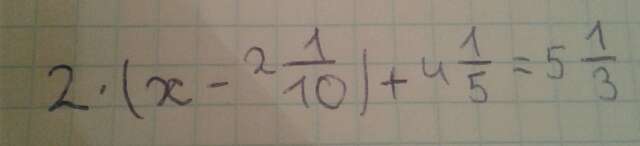 2 · (x - 2 1/10) + 4 1/5 = 5 1/3